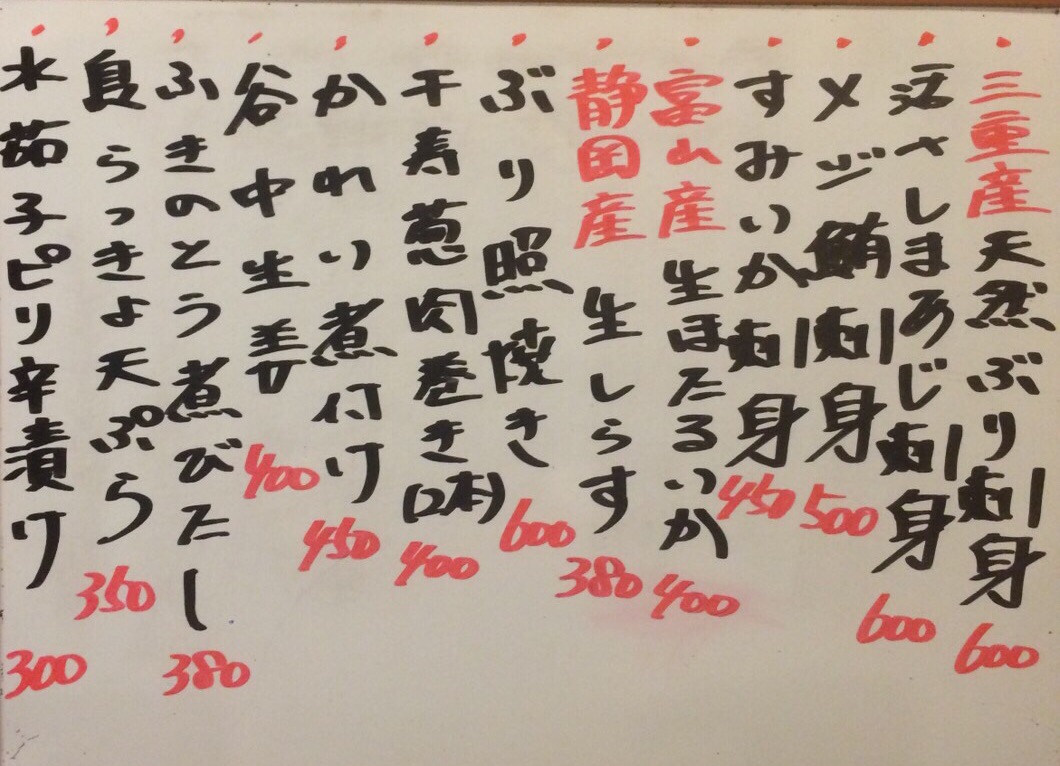 ・三重産天然ぶり刺身 600
・活さしまあじ刺身 600
・メジ鮪刺身 500
・すみいか刺身 450
・富山産生ほたるいか 400
・静岡産生しらす 380
・ぶり照焼き 600
・千寿葱肉巻き(2本) 400
・かれい煮付け 450
・谷中生姜 400
・ふきのとう煮びたし 380
・島らっきょ天ぷら 350
・水茄子ピリ辛漬け 300